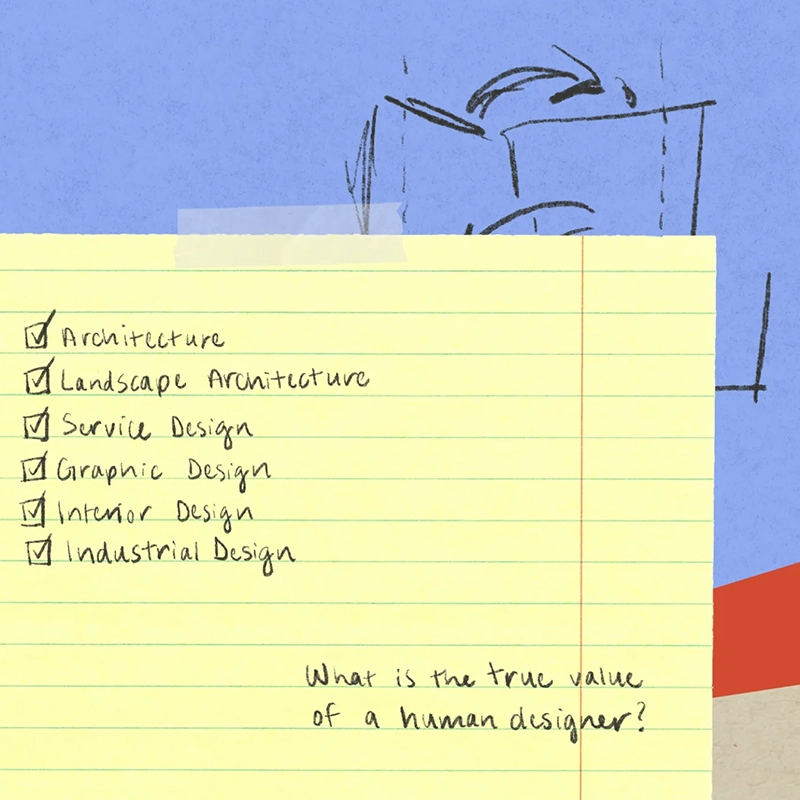 Architecture
Landscape Architecture
Service Design
Graphic Design
Interior Design
Industrial Design
What is the true value
of a human designer?